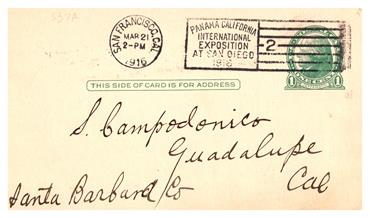 537A
SAN FRANCISCO, CAL.
MAR 21
2-PM
1916
PANAMA CALIFORNIA
INTERNATIONAL
EXPOSITION
AT SAN DIEGO
1916
2
1 1
THIS SIDE OF CARD IS FOR ADDRESS
S. Campodonico
Guadalupe
Santa Barbara Co Cal